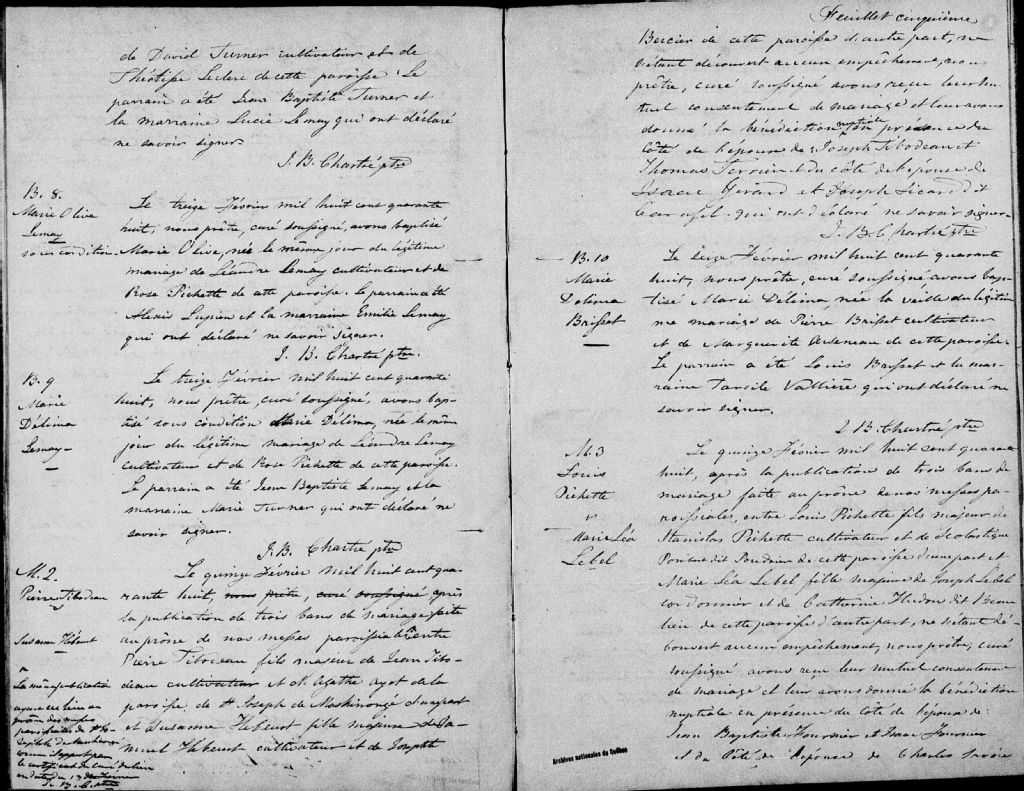 de David Turner cultivateur et de
Théotisse Leclerc de cette paroisse. Le
parrain a été Jean Baptiste Turner et
la marraine Lucie Lemay qui ont déclaré
ne savoir signer
J. B. Chartré ptre
B. 8.
Marie Olive
Lemay
sous condition
Le treize Février mil huit cent quarante
huit, nous prêtre, curé soussigné, avons baptisé
Marie Olive, née le même jour du légitime
mariage de Léandre Lemay cultivateur et de
Rose Pichette de cette paroisse. Le parrain a été
Alexis Lupien et la marraine Emilie Lemay
qui ont déclaré ne savoir signer.
J. B. Chartré ptre.
B. 9
Marie
Délima
Lemay
Le treize Février mil huit cent quarante
huit, nous prêtre, curé soussigné, avons bap-
tisé sous condition Marie Délima, née le même
jour du légitime mariage de Léandre Lemay
cultivateur et de Rose Pichette de cette paroisse.
Le parrain a été Jean Baptiste Lemay et la
marraine Marie Turner qui ont déclaré ne
savoir signer.
J. B. Chartré ptre
M. 2.
Pierre Tibodeau
Susanne Hébert
La même publication
ayant eu lieu au
prône des messes
paroissiales de
le certificat du curé du lieu
en date du 13
J. B. C. ptre
Le quinze Février mil huit cent qua-
rante huit, nous prêtre, curé soussigné après
la publication de trois bans de mariage faite
au prône de nos messes paroissiales, entre
Pierre Tibodeau fils majeur de Jean Tibo-
deau cultivateur et d'Agathe ayot de la
paroisse de St Joseph de Maskinongé d'une part
et Susanne Hebert fille majeure de Sa-
muel Hebert cultivateur et de Josephte
Feuillet cinquième
Bercier de cette paroisse d'autre part, ne
s'étant découvert aucun empêchement, nous
prêtre, curé soussigné avons reçu leur mu-
tuel consentement de mariage et leur avons
donné la bénédiction nuptiale en présence du
côté de l'époux de Joseph Tibodeau et
Thomas et du côté de l'épouse de
Isaac Gerard et Joseph Sicard dit
Carufel qui ont déclaré ne savoir signer
J. B. Chartré ptre
B. 10
Marie
Delima
Brisset
Le seize Février mil huit cent quarante
huit, nous prêtre, curé soussigné avons bap-
tisé Marie Delima née la veille du légiti-
me mariage de Pierre Brisset cultivateur
et de Marguerite de cette paroisse.
Le parrain a été Louis Brisset et la mar-
raine Tarsile Vallière qui ont déclaré ne
savoir signer.
J. B. Chartré ptre
M. 3
Louis
Pichette
&
Marie Léa
Lebel
Le quinze Février mil huit cent quarante
huit, après la publication de trois bans de
mariage faite au prône de nos messes pa-
roissiales, entre Louis Pichette fils majeur de
Stanislas Pichette cultivateur et de Scolastique
dit de cette paroisse d'une part et
Marie Léa Lebel fille majeure de Joseph Lebel
cordonnier et de Catherine Hudon dit Beau
lieu de cette paroisse d'autre part, ne s'étant dé-
couvert aucun empêchement, nous prêtre, curé
soussigné avons reçu leur mutuel consentement
de mariage et leur avons donné la bénédiction
nuptiale en présence du côté de l'époux de
Jean Baptiste Fournier et Isaac Fournier
et du Côté de l'épouse de Charles Savoie
Archives nationales du Québec